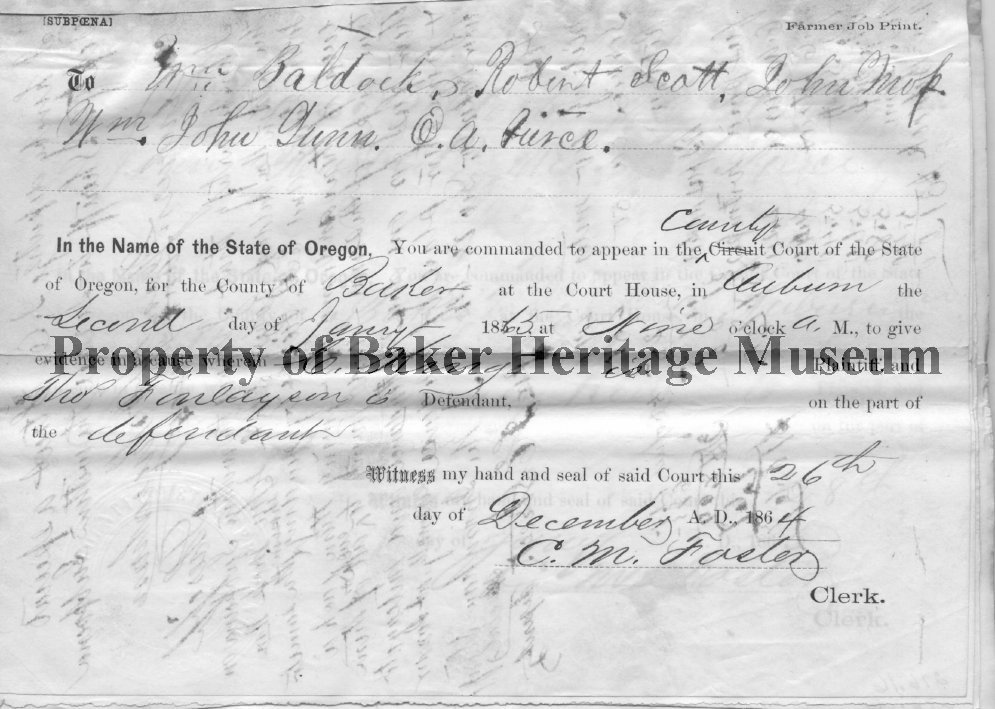 [SUBPŒNA]
Farmer Job Print.
To Wm Baldock, Robert Scott, John
Wm. John Gunn. O. A. Pierce.
County
In the Name of the State of Oregon, You are commanded to appear in the Circuit Court of the State
of Oregon, for the County of Baker at the Court House, in Auburn the
Second day of Janry 1865 at Nine o'clock A. M., to give
evidence in a cause wherein Co. Plaintiff, and
Property of Baker Heritage Museum
Thos Finlayson is Defendant, on the part of
the defendant
Witness my hand and seal of said Court this 26th
day of December A. D., 1864
C. M. Foster
Clerk.